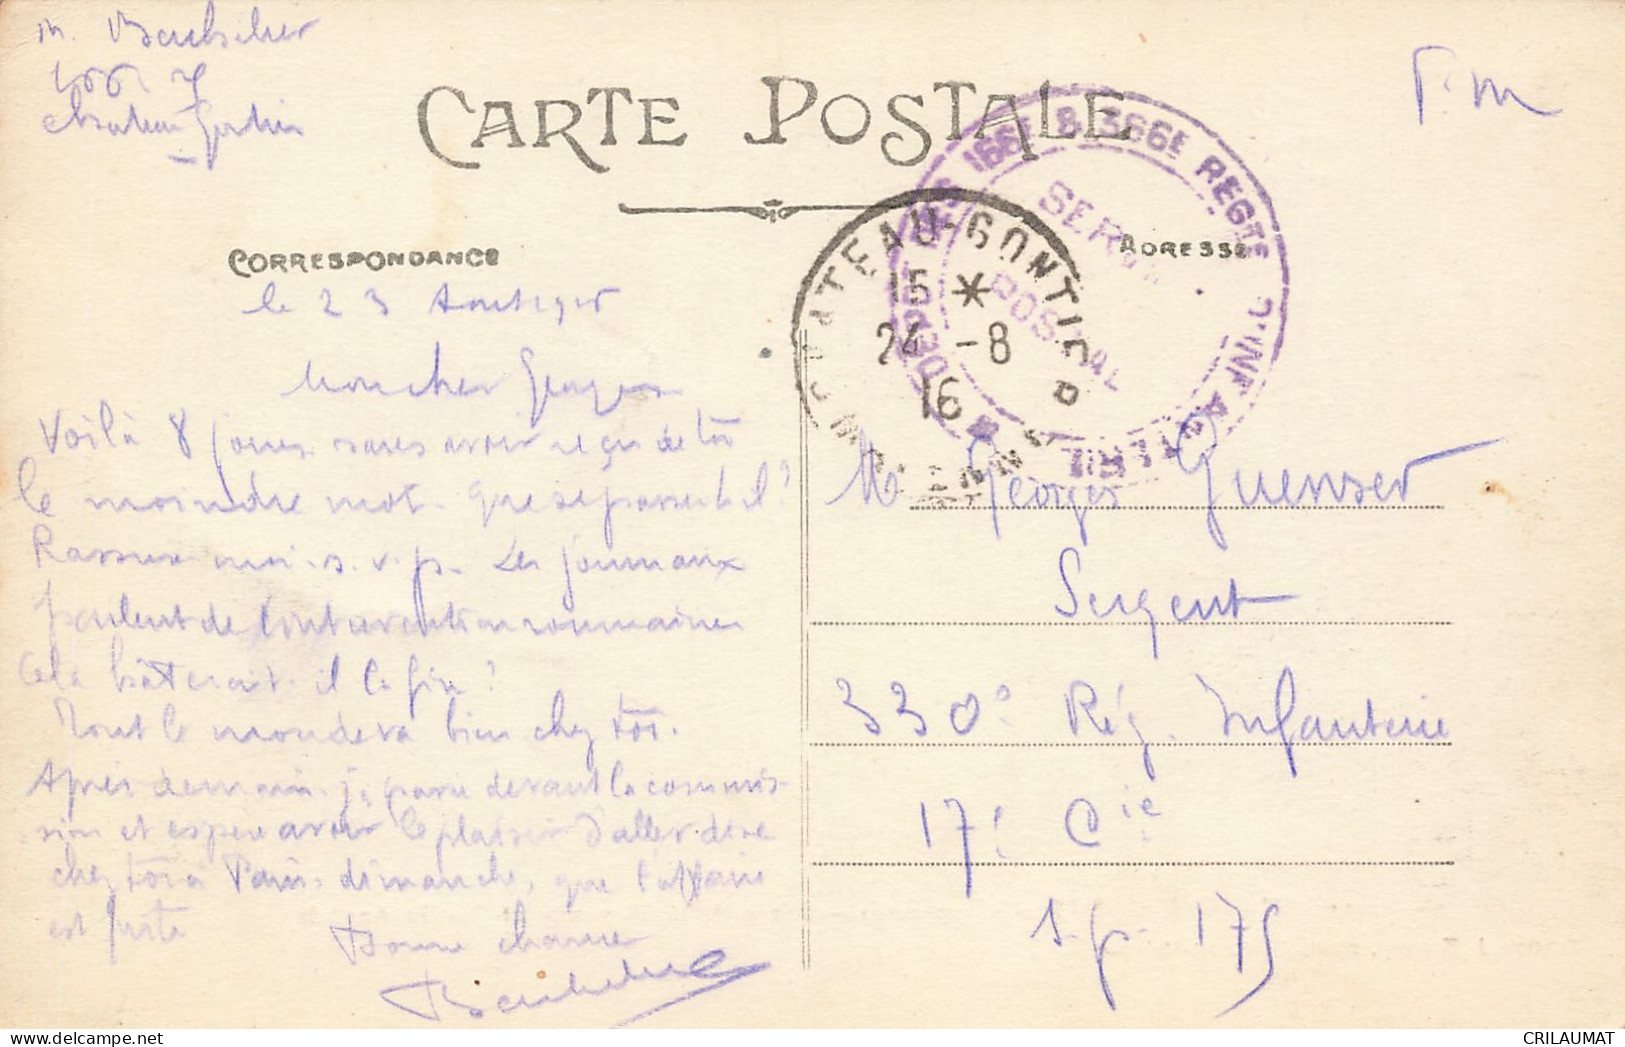 CARTE POSTALE
F. M
CORRESPONDANCE
ADRESSE
DEPOT DES 166E & 366E REGTS D'INFANTERIE
SERVICE POSTAL
CHATEAU-GONTIER
15 *
24 -8
16
M
Château-Gontier
le 23 Août 1916
Mon cher Georges
Voilà 8 jours sans avoir reçu de toi
le moindre mot. Que se passe t-il ?
Rassure-moi. s. v. p. Les journaux
parlent de l'intervention roumaine
Cela hâterait-il la fin ?
Tout le monde va bien chez toi.
Après demain je passe devant la commis-
sion et espère avoir le plaisir d'aller dire
chez toi à Paris dimanche, que l'affaire
est faite
Bonne chance
M. Georges Guenser
Sergent
330e Rég. Infanterie
17e Cie
S. p. 175
CRILAUMAT